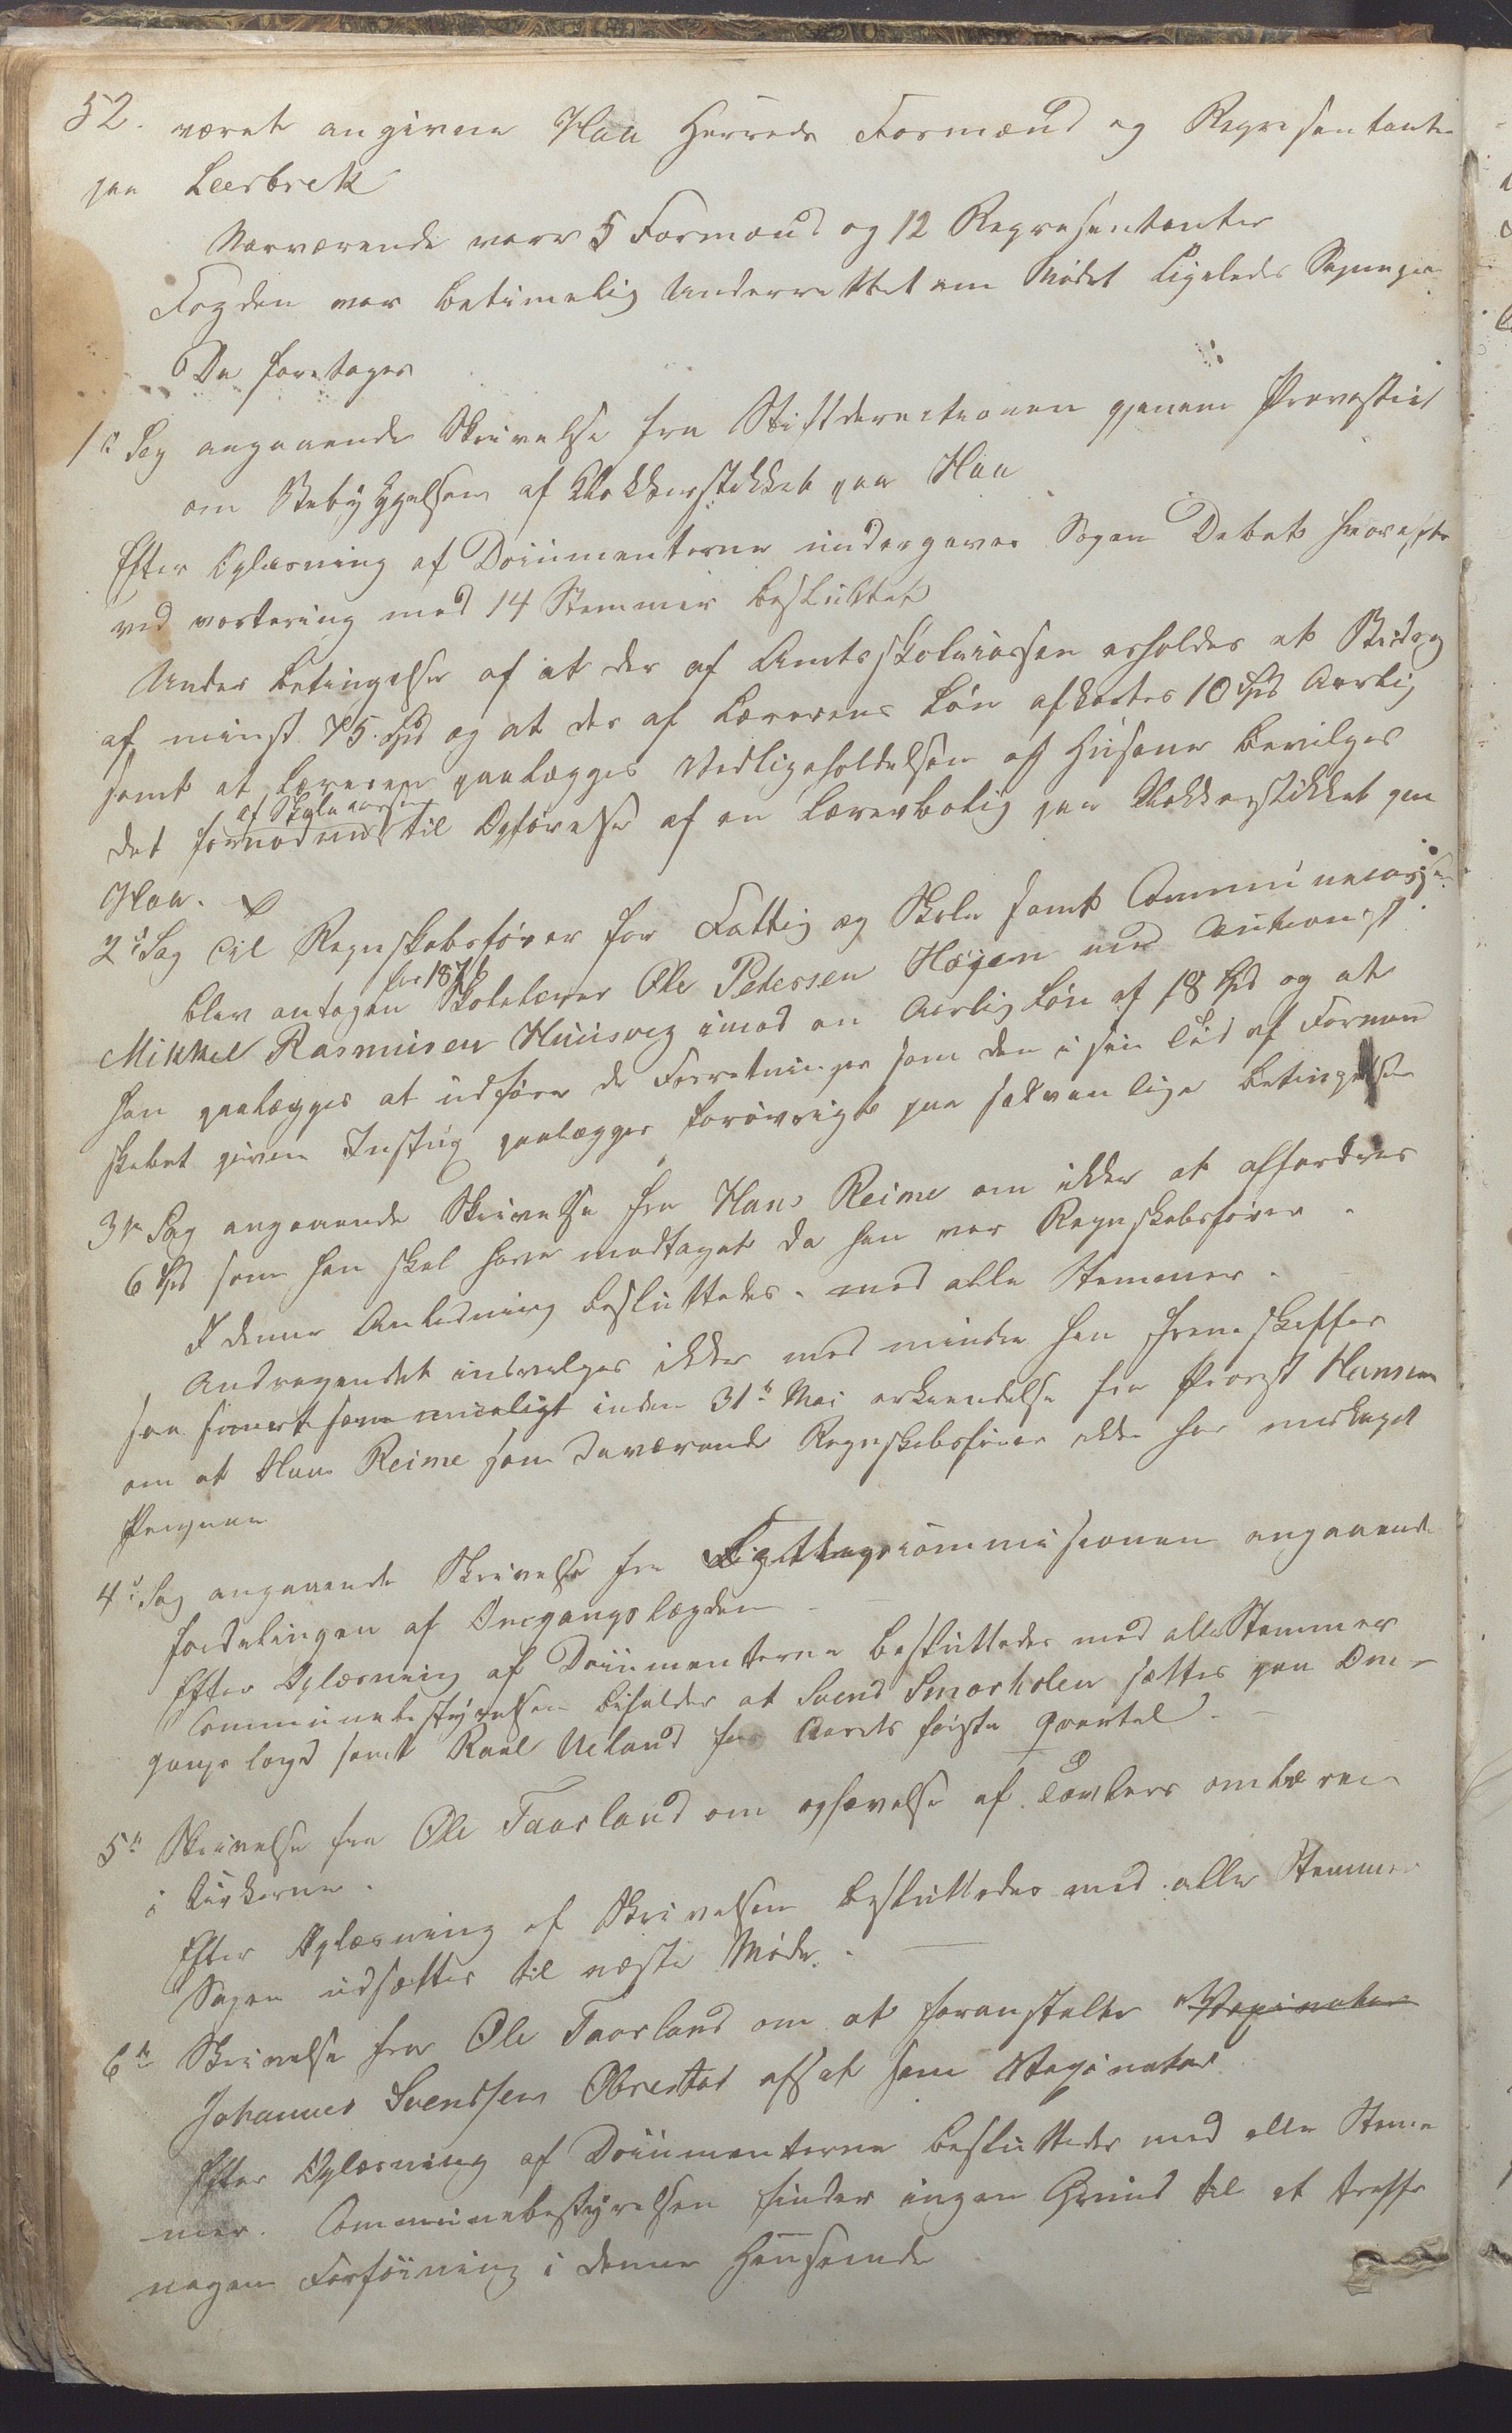 52. været angivne Haa Herreds Formænd og Representanter
paa Leerbrek
Nærværende vare 5 Formænd og 12 Representanter
Fogden var betimelig Underrettet om Mødet ligeledes
Da foretages
1ste Sag angaaende Skrivelse fra Stiftderectionen gjenem Provstiet
om Bebyggelsen af Klokkerstikket paa Haa
Efter Oplæsning af Documenterne undergaves Sagen Debat hvorefter
ved vortering med 14 Stemmer besluttet
Under betingelse af at der af Amtsskolecassen erholdes et Bidrag
af minst 75 Spd og at der af Lærerens Løn afkortes 10 Spd Aarlig
samt at Læreren paalægges Vedligeholdelsen af Husene bevilges
af Skolecassen
det fornødne til Opførelse af en Lærerbolig paa Klokkerstikket paa
Haa.
2d Sag Til Regnskabsfører for Fattig og Skole samt Communecassen
for 1876
blev antagen Skolelærer Ole Petersen Høien med Cautionist
Mikkel Rasmusen Huusveg imod en Aarlig Løn af 18 Spd og at
han paalægges at udføre de Forretninger som den i sin Tid af Forman
skabet givne Instux paalægger forøvrigt paa sedvanlige betingelser
3die Sag angaaende Skrivelse fra Hans Reime om ikke at affordres
6 Spd som han skal have modtaget da han var Regnskabsfører.
I denne Anledning besluttedes. med alle Stemmer.
Andragendet indvilges ikke med mindre han fremskaffer
saa snart som mueligt inden 31te Mai erkiendelse fra Provst Hansen
om at Hans Reime som daværende Regnskabsfører ikke har modtaget
Pengene
4d Sag angaaende Skrivelse fra Fattigcommisionen angaaende
fordelingen af Omgangslægden
Efter Oplæsning af Documenterne besluttedes med alle Stemmer
Communebestyrelsen bifalder at Svend Smorholen sættes paa Om-
gangs lægd samt Rael Ueland for Aarets første Qvartal.
5te Skrivelse fra Ole Taarland om ophævelse af Tavlers ombæren
i Kirkerne.
Efter Oplæsning af Skrivelsen besluttedes med alle Stemmer
Sagen udsættes til næste Møde.
6te Skrivelse fra Ole Taarland om at foranstalte Vaxinator
Johannes Svendsen Obrestad afsat som Vaxinator
Efter Oplæsning af Documenterne besluttedes med alle Stem
mer. Communebestyrelsen finder ingen Grund til at treffe
nogen Forføining i denne Henseende